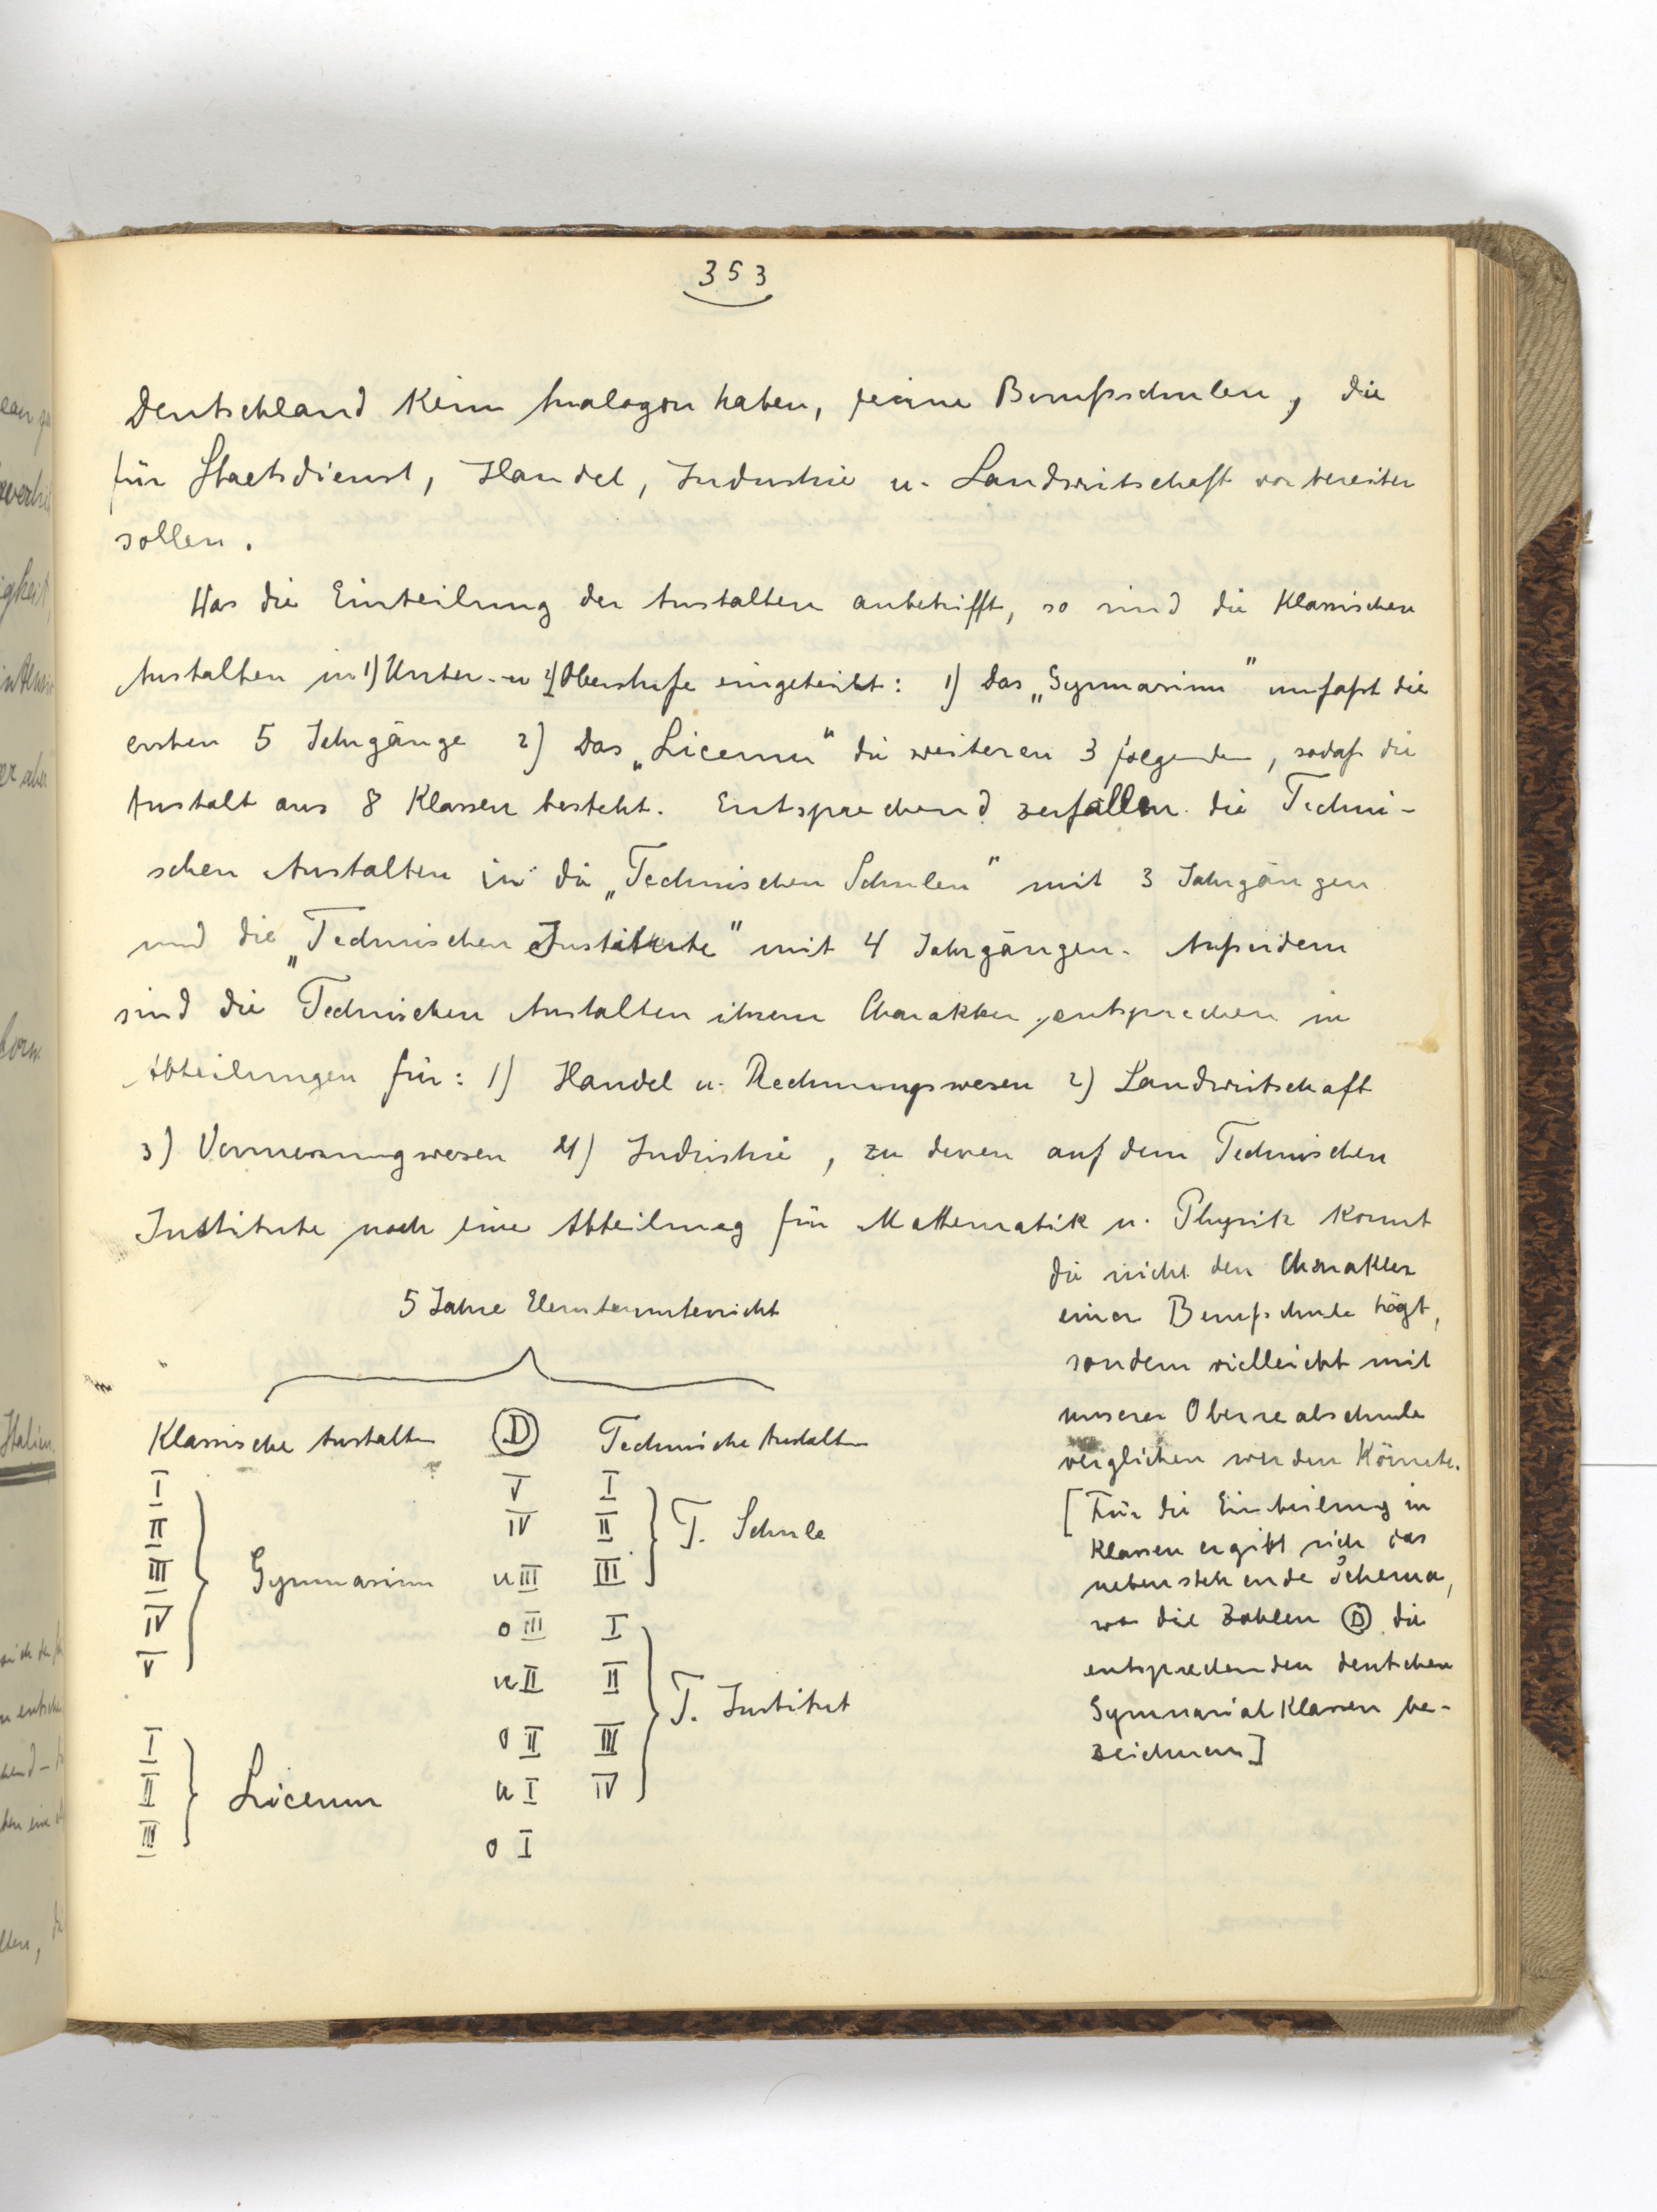 353
Deutschland kein Analogon haben, reine Berufsschulen, die
für Staatsdienst, Handel, Industrie u. Landwirtschaft vorbereiten
sollen.
Was die Einteilung der Anstalten anbetrifft, so sind die Klassischen
Anstalten in 1) Unter- u 2) Oberstufe eingeteilt: 1) Das „Gymnasium" umfaßt die
ersten 5 Jahrgänge 2) Das „Liceum" die weiteren 3 folgenden, sodaß die
Anstalt aus 8 Klassen besteht. Entsprechend zerfallen die Techni-
schen Anstalten in die „Technischen Schulen" mit 3 Jahrgängen
und die „Technischen Institute" mit 4 Jahrgängen. Außerdem
sind die Technischen Anstalten ihrem Charakter entsprechen in
Abteilungen für: 1) Handel u. Rechnungswesen 2) Landwirtschaft
3) Vermessungswesen 4) Industrie, zu denen auf dem Technischen
Institute noch eine Abteilung für Mathematik u. Physik kommt
die nicht den Charakter
einer Berufschule trägt,
sondern vielleicht mit
unserer Oberrealschule
verglichen werden könnte.
[Für die Einteilung in
Klassen ergibt sich das
nebenstehende Schema,
wo die Zahlen D die
entsprechenden deutschen
Gymnasialklassen be-
zeichnen]
5 Jahre Elementarunterricht
Klassische Anstalten D Technische Anstalten
I V I
II IV II T. Schule
III Gymnasium u III III
IV o III I
V u II II
T. Institut
I o II III
II Liceum u I IV
III o I